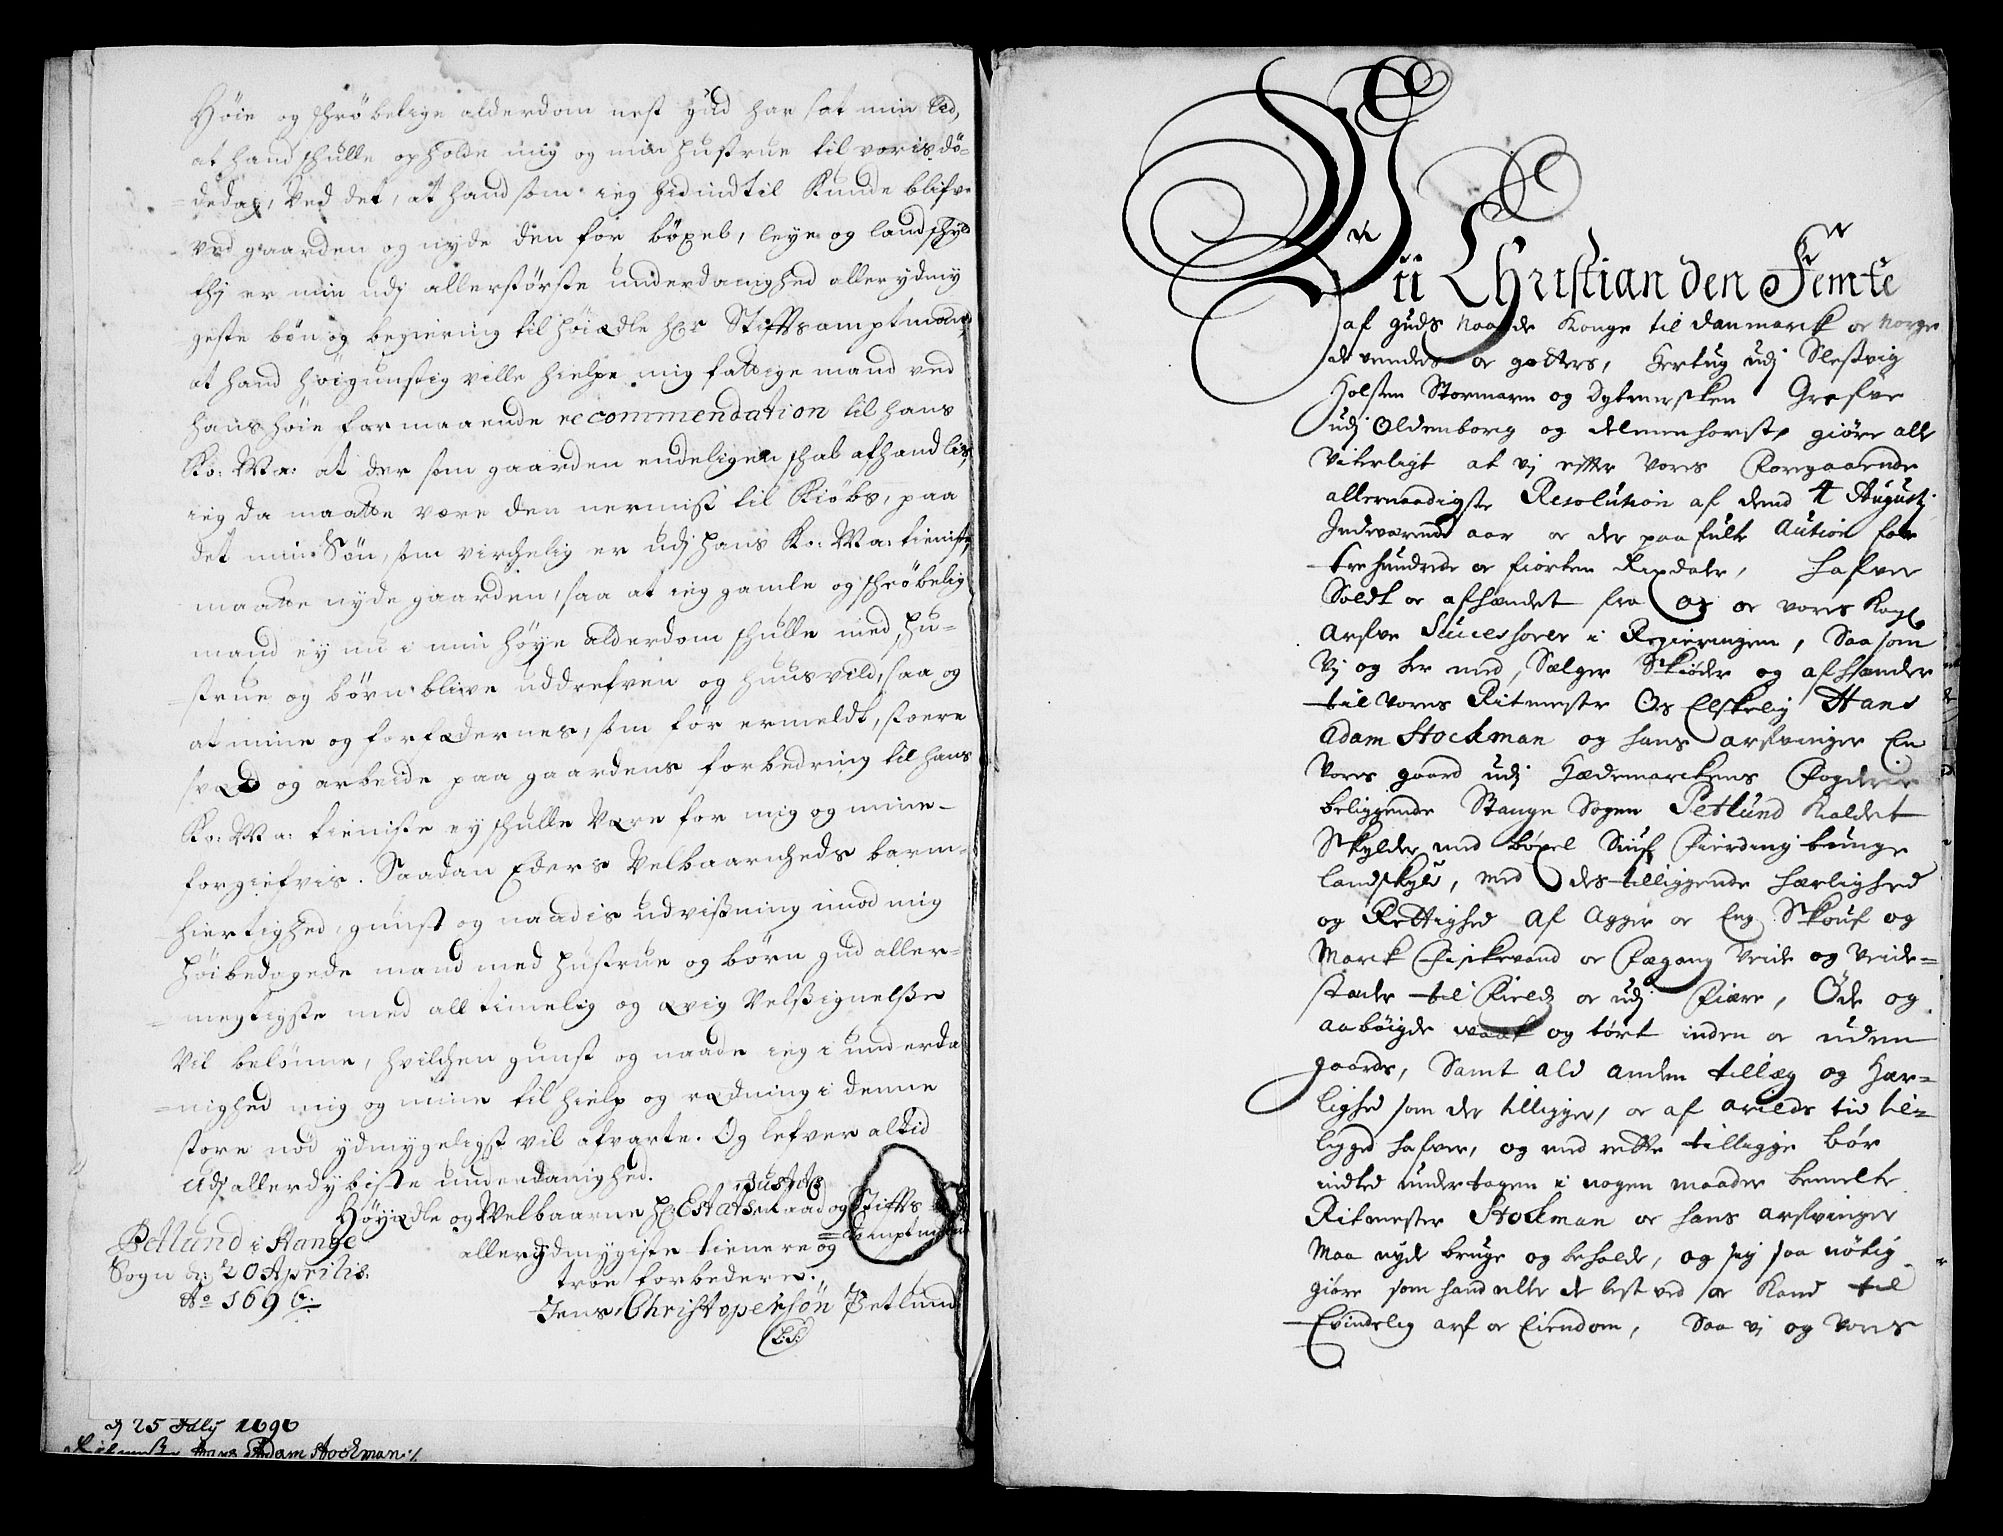 Høie og skrøbelige alderdom nest gud har sat min lid,
at hand skulle opholde mig og min hustrue til voris dö-
=dedag, Ved det, at hand som ieg hid indtil Kunde blifve
ved gaarden og nyde den for böxel, leye og landskyld
thj er min udj allerstörste underdanighed aller ydmy
geste bön og begiering til höiædle hr Stiftsamptmand,
at hand höigunstig ville hielpe mig fattige mand ved
hans höie formaaende recommendation til hans
Ko: Ma: at der som gaarden endeligen skal afhandlis,
ieg da maatte være den nermist til Kiöbs, paa
det min Sön, som virchelig er udj hans Ko: Ma: tieniste,
maatte nyde gaarden, saa at ieg gamle og skröbelig
mand ey nu i min höye alderdom skulle med hu-
strue og börn blive uddrefven og huusvild, saa og
at mine og forfædernes, som för ermeldt, stoere
sved og arbeide paa gaardens forbedring til hans
Ko: Ma: tieniste ey skulle Være for mig og mine
forgiefvis. Saadan Eders Velbaarnheds barm-
hiertighed, gunst og naadis udvißning imod mig
höibedagede mand med hustrue og börn gud aller-
=megtigste med all timelig og ævig Velßignelße
Vil belönne, hvilchen gunst og naade ieg i underda
=nighed mig og mine til hielp og rædning i denne
store nöd ydmygeligst vil afvarte. Og lefver altid
udj allerdybiste underdanighed.
Justits
Höyædle og Velbaarne hr Estatsraad og Stiffts
=amptmand
allerydmygiste tienere og
troe forbedere.
Jens Christophersön Petlund
Petlund i Stange
Sogn d: 20 Aprilis
Ao 1696:
d 25 July 1696
Hans Adam Stockman
Vii Christian den Femte
af guds Naade Konge til Danmarck og Norge
de venders og gotters, Hertug udj Slesvig
Holsten Stormarn og Dytmersken Grefve
udj Oldenborg og Delmenhorst, giöre alle
Viterligt at vj efter Vores Foregaaende
allernaadigste Resolution af dend 4 Augustj
Indeværende aar og der paa fulte Aution for
tre hundrede og fiorten Rixdaler, hafver
Soldt og afhændet fra Os og vores Kongl.
Arfve Successorer i Regieringen, Saa som
Vj og her med, Sælger Skiöder og afhænder
til Vores Ritmester Os Elskelig Hans
Adam Stockman og hans arfvinger En
Vores gaard udj Hædemarckens Fogderie
beliggende Stange Sogen Petlund Kaldet
Skylder med böxel Siuf Fierding tunge
landskyld, med des tilliggende herlighed
og Rettighed af Agger og Eng Skouf og
Marck Fiskevand og Fægang Veide og Veide=
stæder til Field og udj Fiære, Öde og
aaböigde vaat og tört inden og uden
gaards, Samt ald anden tillæg og Her=
lighed som der tilligger, og af arilds tid til=
ligged hafver, og med rette tilligge bör
indted undertagen i nogen maader bemelte
Ritmester Stockman og hans arfvinger
Maa nyde bruge og beholde, og sig saa nötig
giöre som hand eller de best ved og Kand til
Evindelig arf og Eiendom, Saa vj og Vores